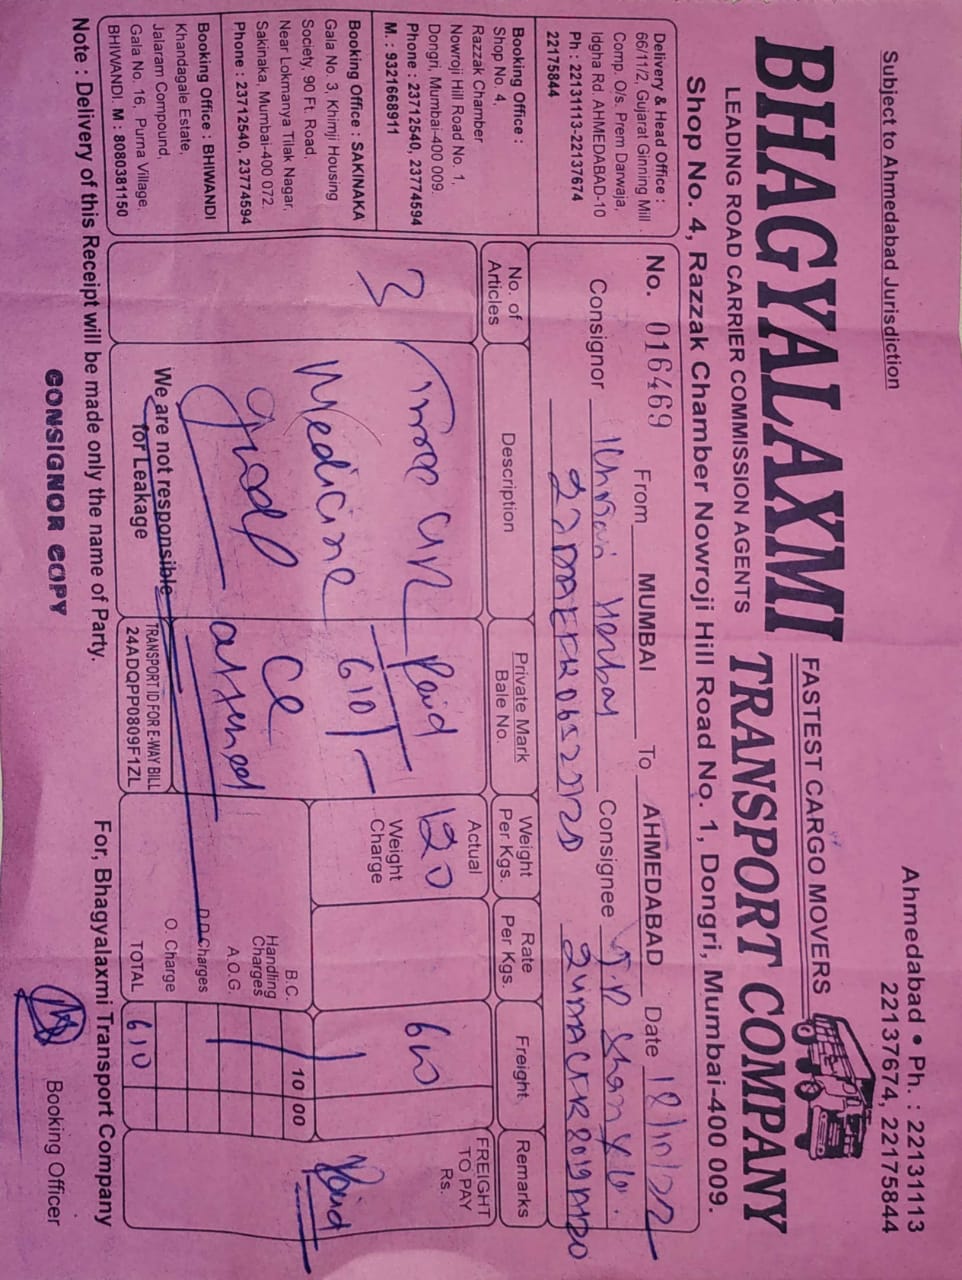 Subject to Ahmedabad Jurisdiction
Ahmedabad • Ph. : 22131113
22137674, 22175844
FASTEST CARGO MOVERS
BHAGYALAXMI TRANSPORT COMPANY
LEADING ROAD CARRIER COMMISSION AGENTS
Shop No. 4, Razzak Chamber Nowroji Hill Road No. 1, Dongri, Mumbai-400 009.
Delivery & Head Office :
66/11/2, Gujarat Ginning Mill
Comp. O/s. Prem Darwaja,
Idgha Rd. AHMEDABAD-10
Ph : 22131113-22137674
22175844
Booking Office :
Shop No. 4,
Razzak Chamber
Nowroji Hill Road No. 1,
Dongri, Mumbai-400 009.
Phone : 23712540, 23774594
M. : 9321668911
Booking Office : SAKINAKA
Gala No. 3, Khimji Housing
Society, 90 Ft. Road,
Near Lokmanya Tilak Nagar,
Sakinaka, Mumbai-400 072.
Phone : 23712540, 23774594
Booking Office : BHIWANDI
Khandagale Estate,
Jalaram Compound,
Gala No. 16, Purna Village,
BHIWANDI. M : 8080381150
No. 016469 From MUMBAI To AHMEDABAD Date 12/10/22
Consignor Herbay Consignee
No. of Articles
Description
Private Mark
Bale No.
Weight Per Kgs.
Rate Per Kgs.
Freight
Remarks
3
Medicine
Paid
610/-
Actual
120
Weight Charge
610
FREIGHT TO PAY Rs.
Paid
B.C. 10 00
Handling Charges
A.O.G.
D.D.Charges
O. Charge
TOTAL 610
We are not responsible
for Leakage
TRANSPORT ID FOR E-WAY BILL
24ADQPP0809F1ZL
Note : Delivery of this Receipt will be made only the name of Party.
For, Bhagyalaxmi Transport Company
CONSIGNOR COPY
Booking Officer